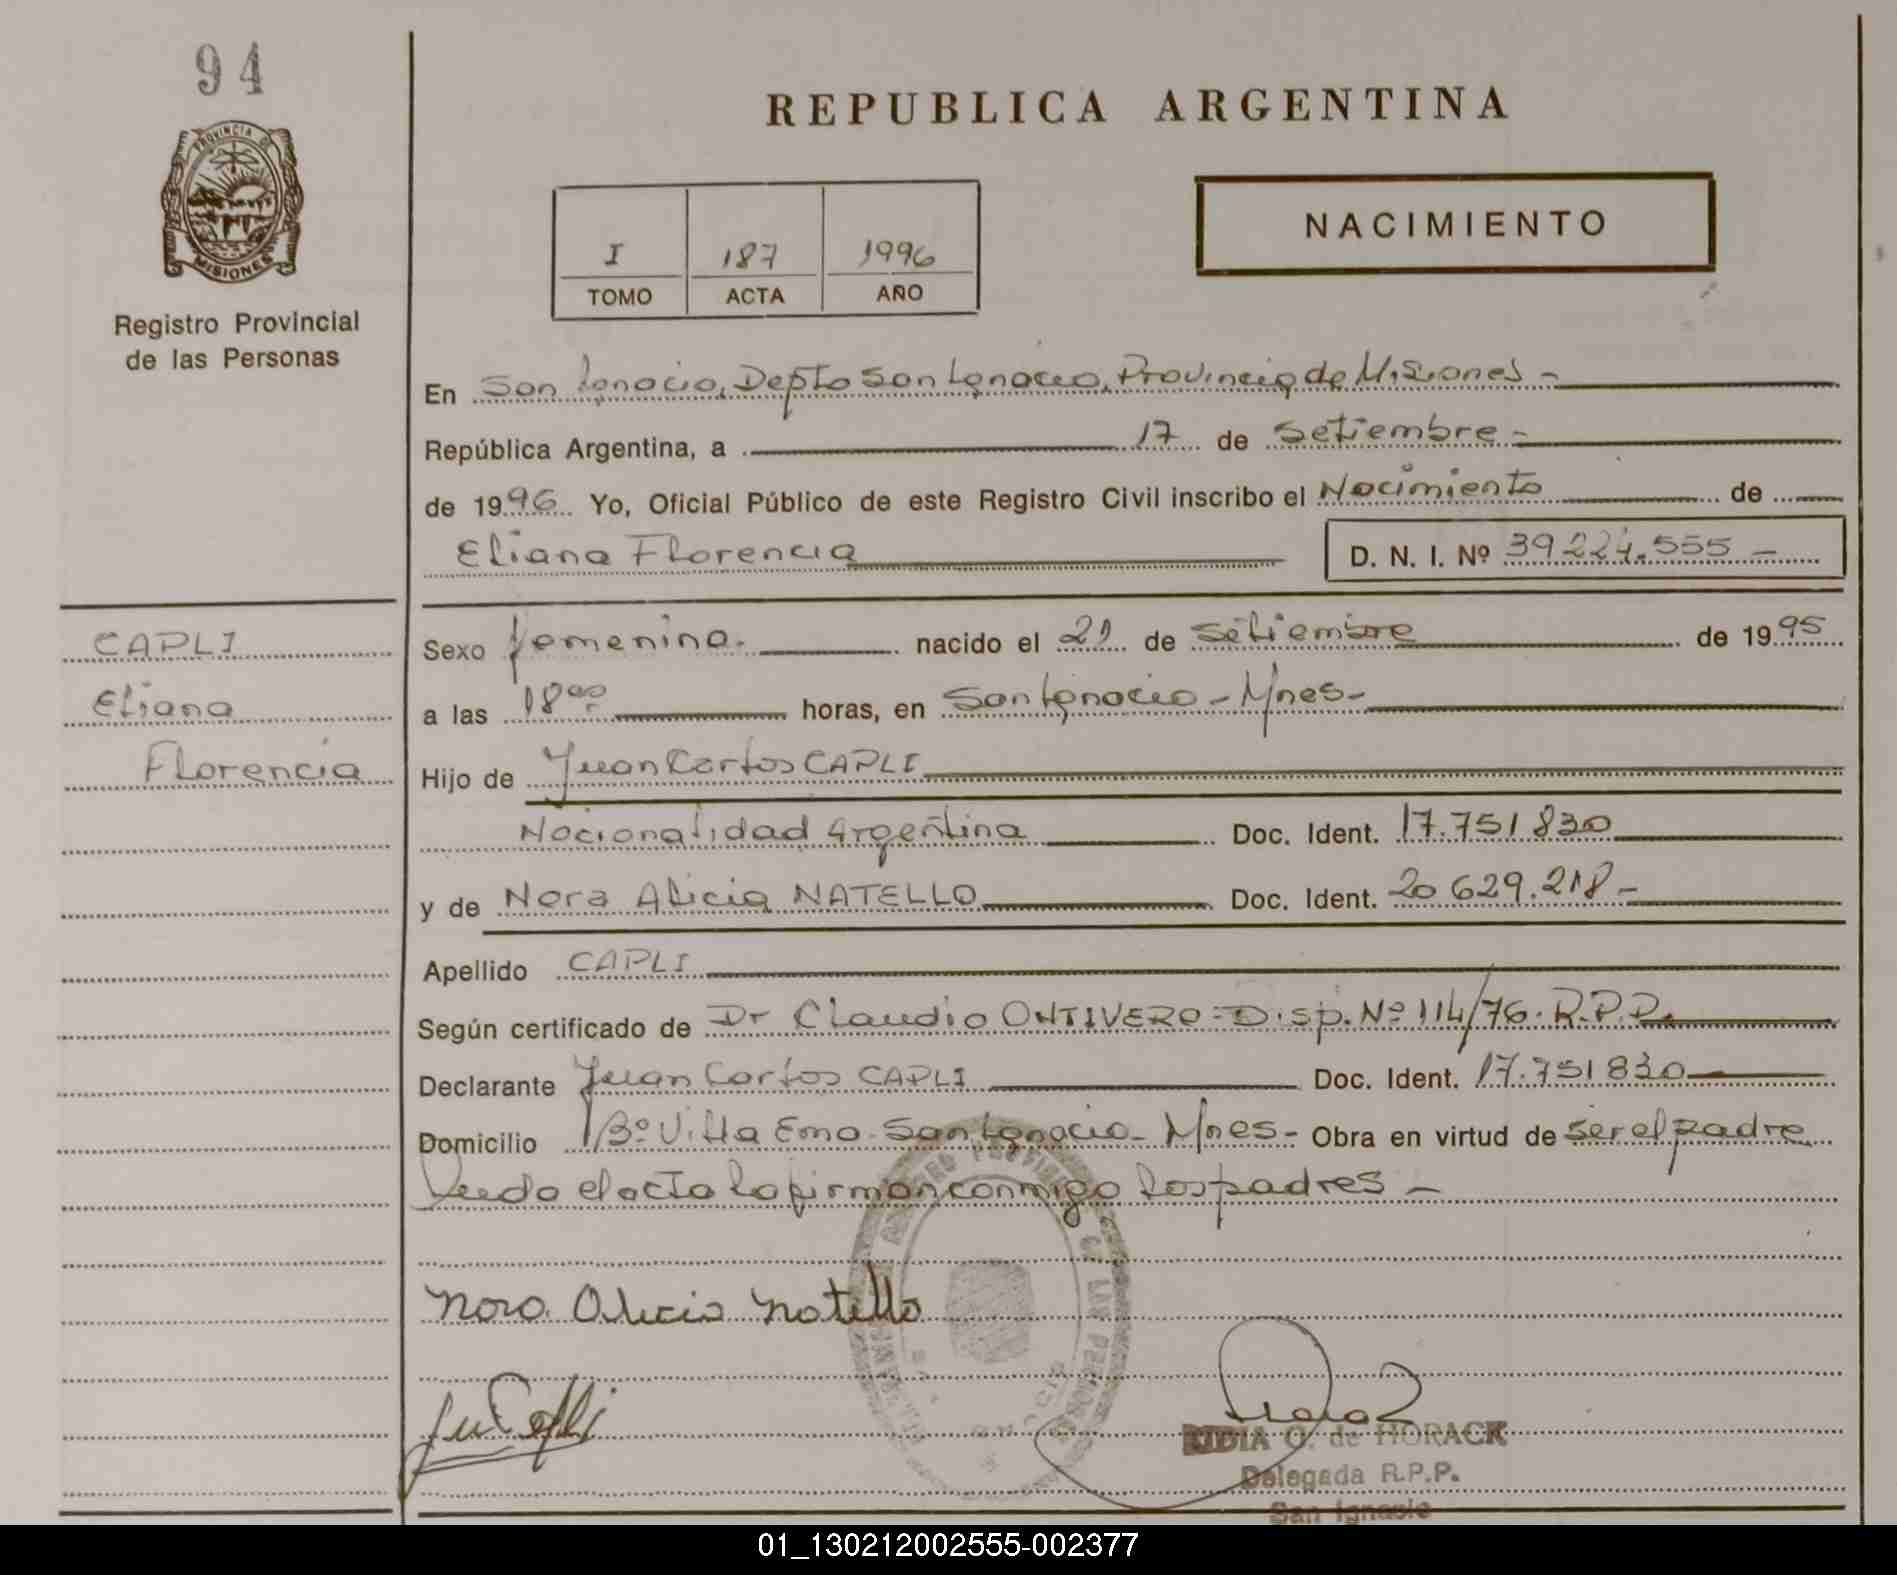 94
PROVINCIA DE
MISIONES
Registro Provincial
de las Personas
REPUBLICA ARGENTINA
I 187 1996
TOMO ACTA AÑO
NACIMIENTO
En San Ignacio, Depto San Ignacio, Provincia de Misiones -
República Argentina, a 17 de Setiembre -
de 1996 Yo, Oficial Público de este Registro Civil inscribo el Nacimiento de
Eliana Florencia D. N. I. Nº 39.224.555 -
CAPLI
Eliana
Florencia
Sexo femenino. nacido el 21 de Setiembre de 1995
a las 18 00 horas, en San Ignacio - Mnes -
Hijo de Juan Carlos CAPLI
Nacionalidad Argentina Doc. Ident. 17.751 830
y de Nora Alicia NATELLO Doc. Ident. 20 629.218 -
Apellido CAPLI
Según certificado de Dr Claudio ONTIVERO - Disp. Nº 114/76. R.P.P.
Declarante Juan Carlos CAPLI Doc. Ident. 17.751 830
Domicilio Bº Villa Ema - San Ignacio - Mnes - Obra en virtud de ser el padre
Leida el acta la firman conmigo los padres -
Nora Alicia Natello
Ju Capli
LIDIA O. de HORACK
Delegada R.P.P.
San Ignacio
01_130212002555-002377